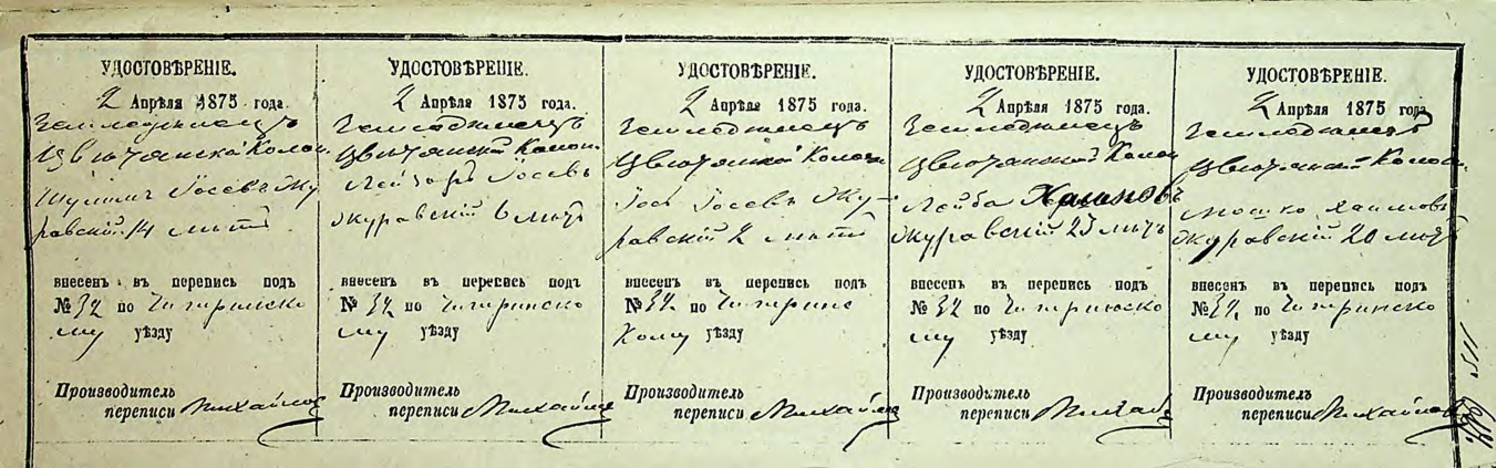 УДОСТОВѢРЕНІЕ.
2 Апрѣля 1875 года.
Земледѣлецъ
Цвѣтянской Колон.
Шулимъ Іосевъ Жу
равскій 14 лѣтъ
внесенъ въ перепись подъ
№ 32 по Чигиринско
му уѣзду
Производитель
переписи Михайлов
УДОСТОВѢРЕНІЕ.
2 Апрѣля 1875 года.
Земледѣлецъ
Цвѣтянской Колон.
Лейзоръ Іосевъ
Журавскій 6 лѣтъ
внесенъ въ перепись подъ
№ 32 по Чигиринско
му уѣзду
Производитель
переписи Михайлов
УДОСТОВѢРЕНІЕ.
2 Апрѣля 1875 года.
Земледѣлецъ
Цвѣтянской Колон
Іось Іосевъ Жу-
равскій 2 лѣтъ
внесенъ въ перепись подъ
№ 32 по Чигиринс
кому уѣзду
Производитель
переписи Михайлов
УДОСТОВѢРЕНІЕ.
2 Апрѣля 1875 года.
Земледѣлецъ
Цвѣтянской Колон
Лейба Хаимовъ
Журавскій 23 лѣтъ
внесенъ въ перепись подъ
№ 32 по Чигиринско
му уѣзду
Производитель
переписи Михай
УДОСТОВѢРЕНІЕ.
2 Апрѣля 1875 года
Земледѣлецъ
Цвѣтянской Колон.
Мошко Хаимовъ
Журавскій 20 лѣтъ
внесенъ въ перепись подъ
№ 32 по Чигиринско
му уѣзду
Производитель
переписи Михайлов
115